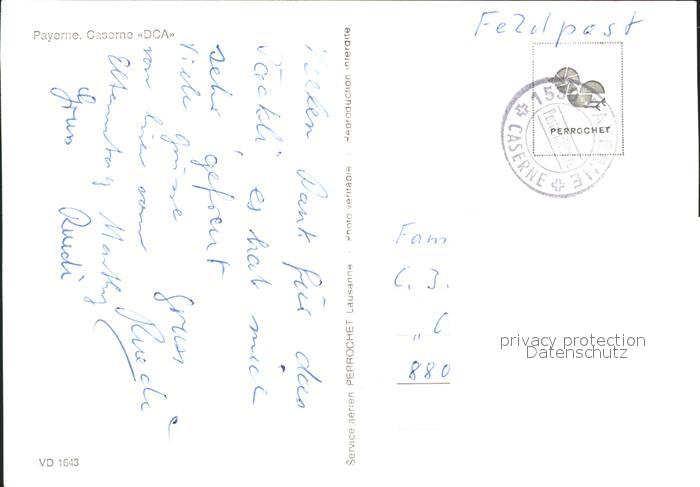 Payerne. Caserne «DCA»
Feldpost
Vielen Dank für das
Päckli es hat mich
sehr gefreut
Viele Grüsse Gruss
von hier vom Ruedi
Elterntag Marthy
Gruss Ruedi
Service aérien PERROCHET Lausanne · Photo véritable · Reproduction interdite
PERROCHET
CASERNE
Fam
C. J.
„C
880
privacy protection
Datenschutz
VD 1643